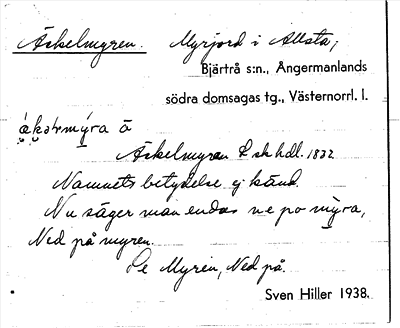 Äskelmyren. Myrjord i Allsta,
Bjärtrå s:n., Ångermanlands
södra domsagas tg., Västernorrl. l.
Äskelmyren L sk hdl. 1832
Namnets betydelse ej känd.
Nu säger man endas ne po myra,
Ned på myren.
Se Myren, Ned på.
Sven Hiller 1938.